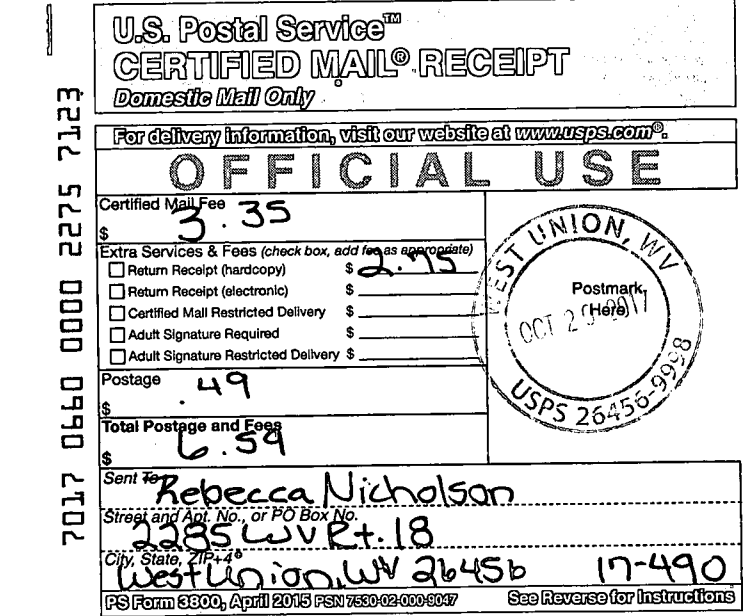 U.S. Postal Service™
CERTIFIED MAIL® RECEIPT
Domestic Mail Only
For delivery information, visit our website at www.usps.com®.
OFFICIAL USE
Certified Mail Fee
$ 3.35
Extra Services & Fees (check box, add fee as appropriate)
Return Receipt (hardcopy) $ 2.75
Return Receipt (electronic) $
Certified Mail Restricted Delivery $
Adult Signature Required $
Adult Signature Restricted Delivery $
Postage
$ .49
Total Postage and Fees
$ 6.59
WEST UNION, WV
Postmark
(Here)
OCT 2 2017
USPS 26456-9998
Sent To Rebecca Nicholson
Street and Apt. No., or PO Box No.
2285 WV Rt. 18
City, State, ZIP+4®
West Union, WV 26456 17-490
PS Form 3800, April 2015 PSN 7530-02-000-9047 See Reverse for Instructions
7017 0660 0000 2275 7123